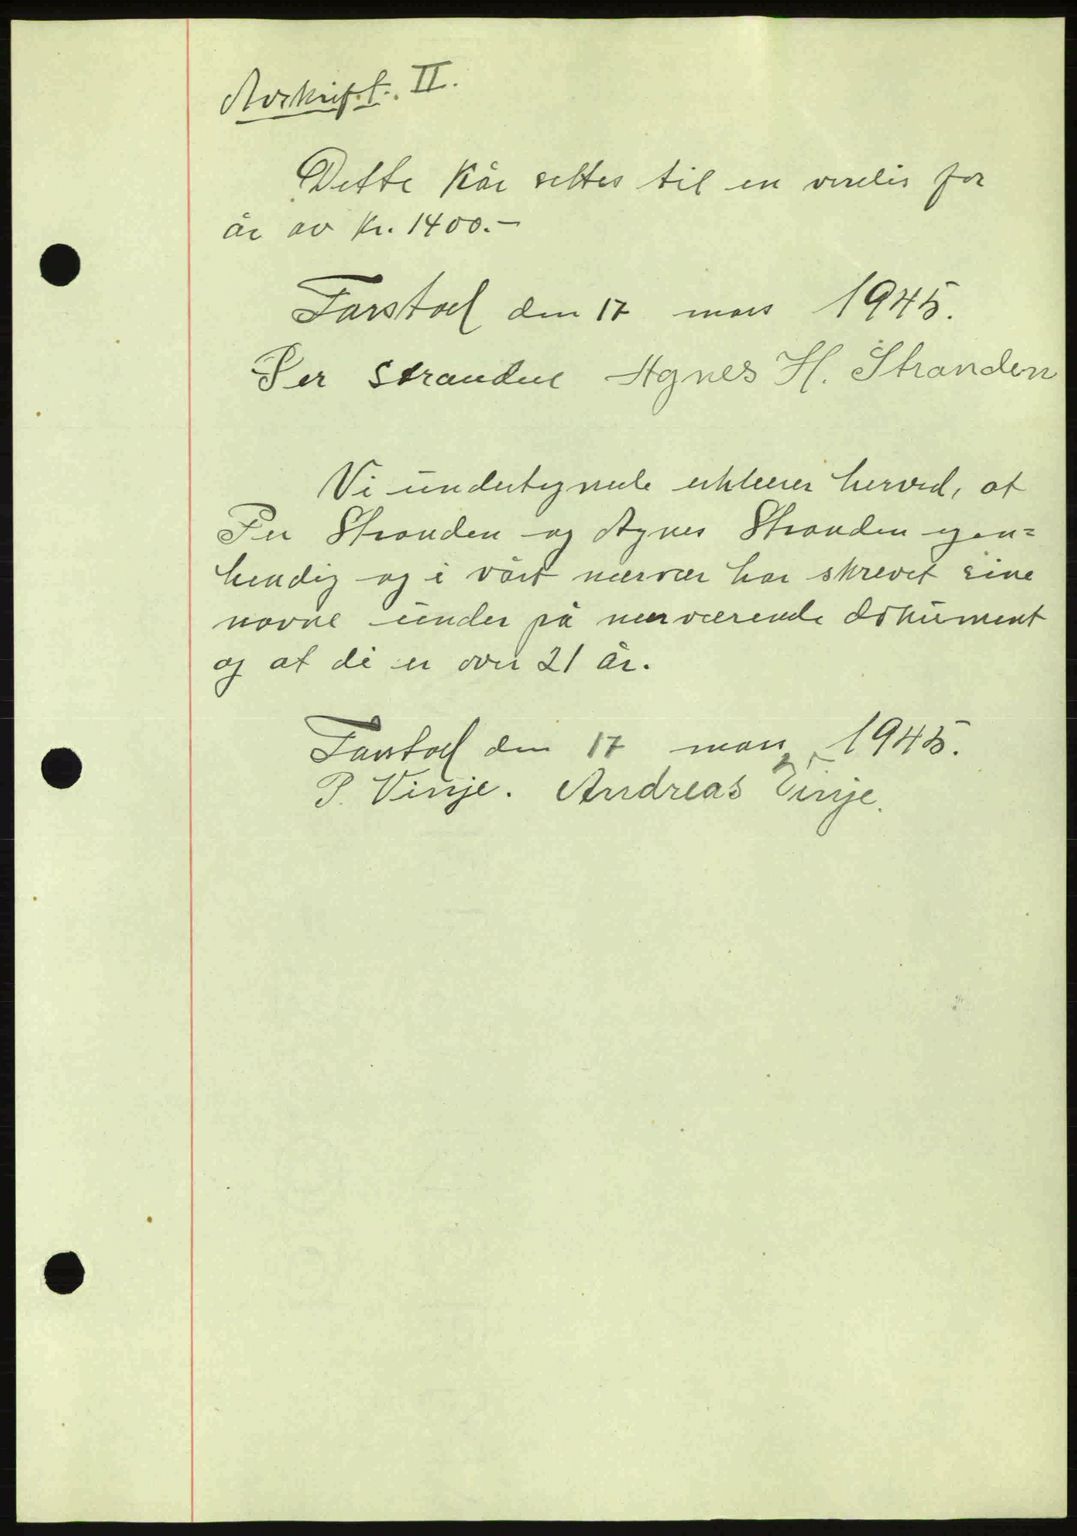 Avskrift. II.
Dette kår settes til en verdi for
år av kr. 1400.-
Farstad den 17 mars 1945.
Per Stranden Agnes H. Stranden
Vi undertegnede erklærer herved, at
Per Stranden og Agnes Stranden egen=
hendig og i vårt nærvær har skrevet sine
navne under på nærværende dokument
og at de er over 21 år.
Farstad den 17 mars 1945.
P. Vinje. Andreas Vinje.